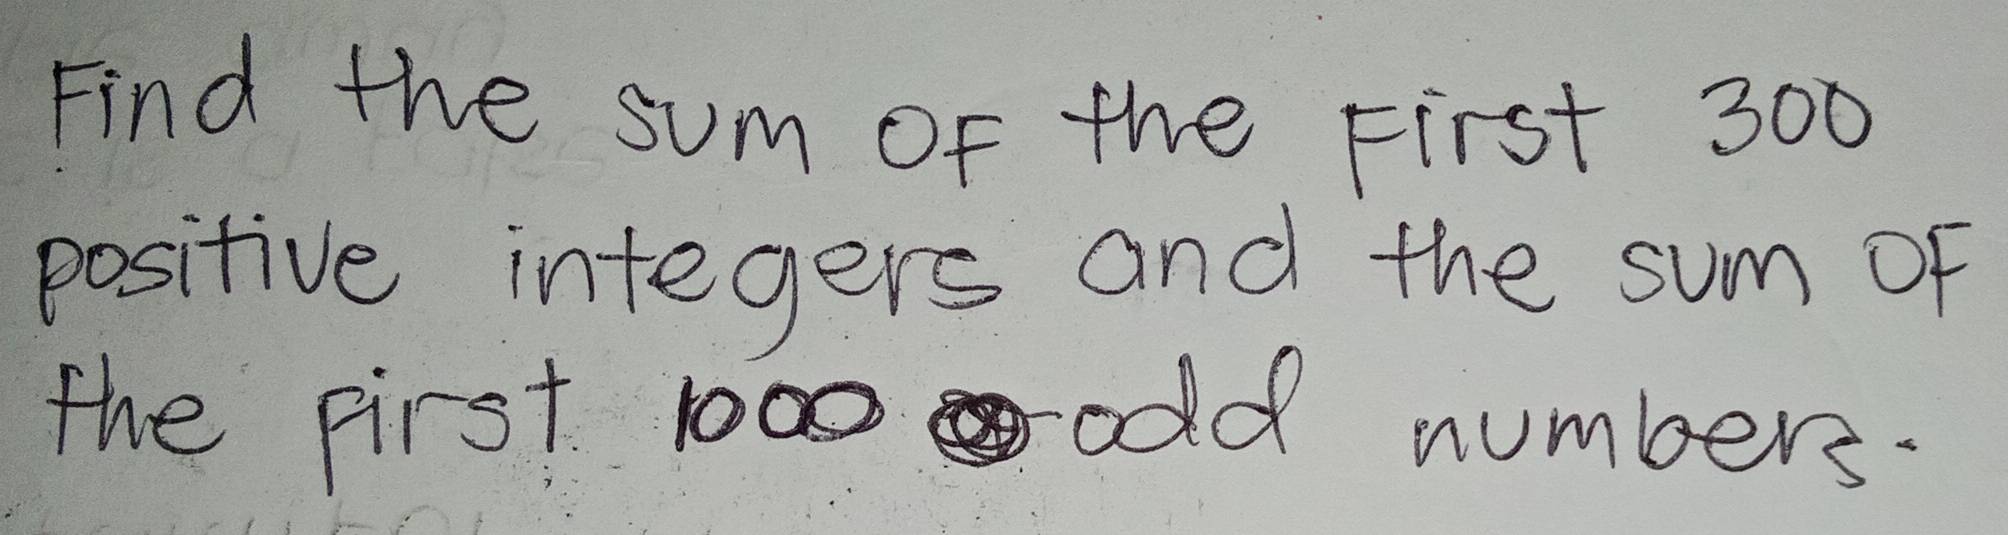 Find the sum of the first 300
positive integers and the sum of
the first 1000 odd numbers.